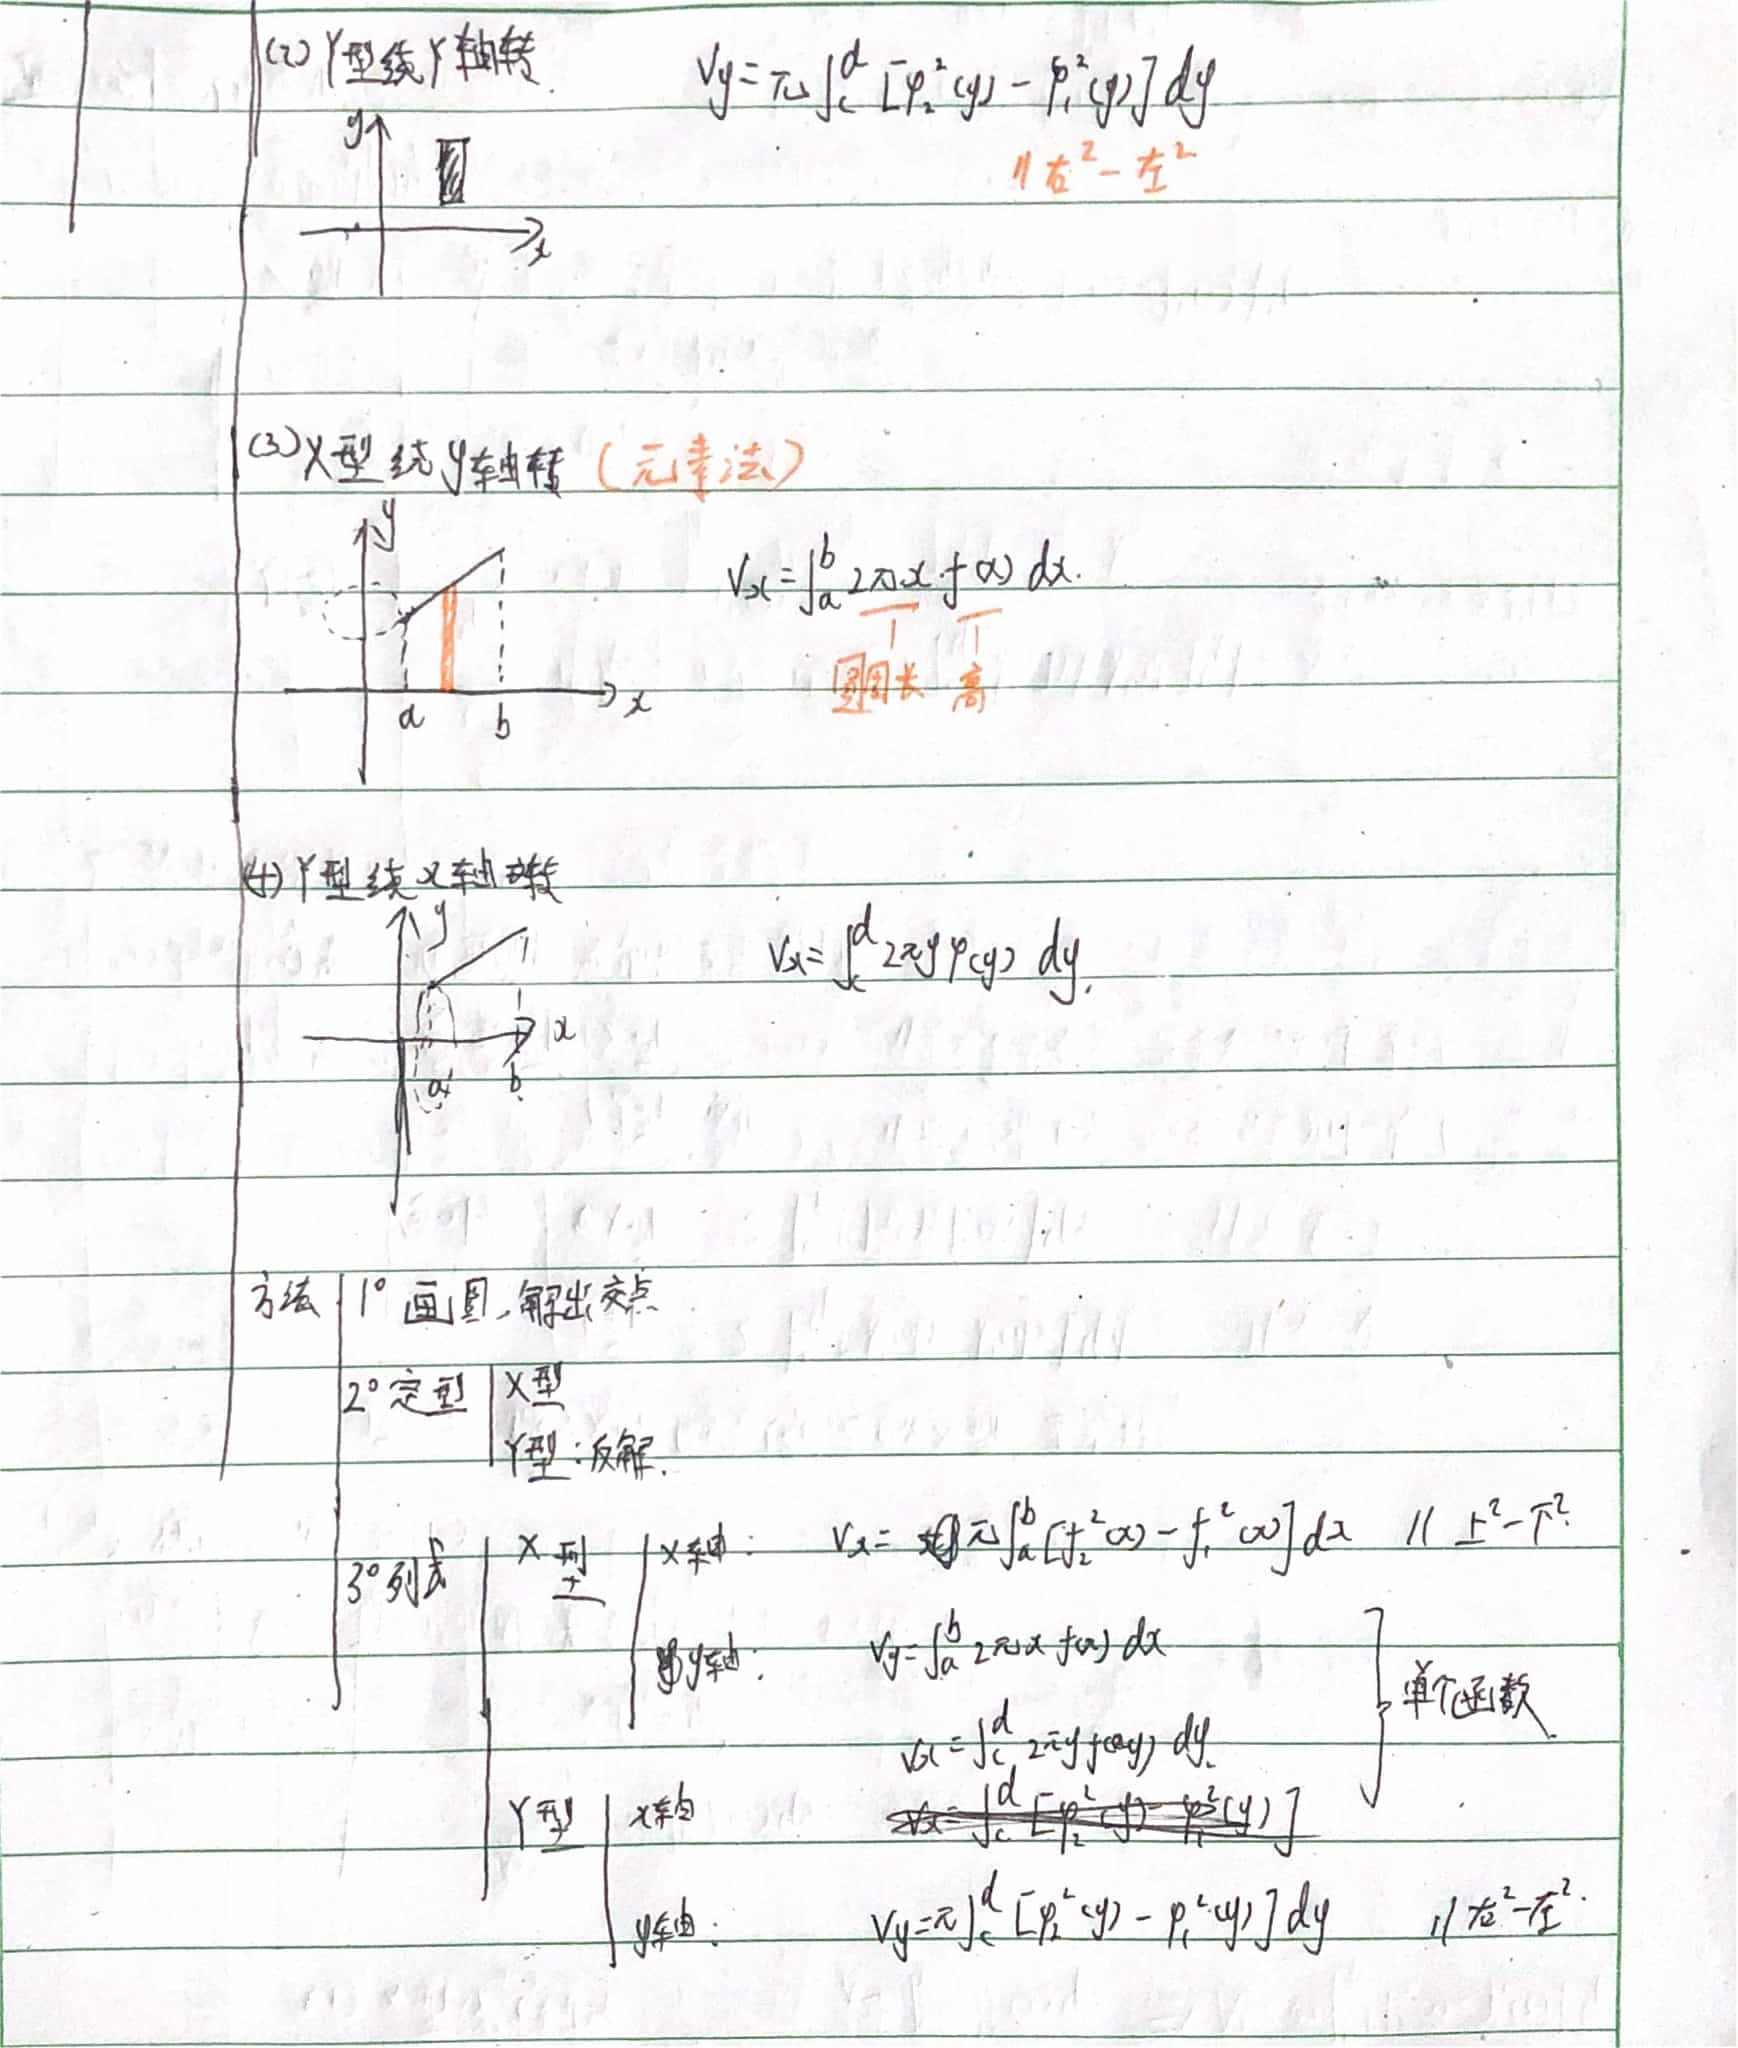 (2) Y型绕Y轴转
Vy = π∫_c^d [φ₂²(y) - φ₁²(y)] dy
// 右² - 左²
y
x
(3) X型绕y轴转 (元素法)
y
Vx = ∫_a^b 2πx·f(x) dx.
圆周长 高
a b x
(4) Y型绕x轴转
y
Vx = ∫_c^d 2πyφ(y) dy.
x
a b
方法 1° 画图,解出交点
2° 定型 X型
Y型:反解.
3° 列式 X型 X轴: Vx = π∫_a^b [f₂²(x) - f₁²(x)] dx // 上² - 下²
y轴: Vy = ∫_a^b 2πx f(x) dx
单个函数
Vx = ∫_c^d 2πy f(y) dy.
Y型 x轴 Vx = ∫_c^d [φ₂²(y) - φ₁²(y)]
y轴: Vy = π∫_c^d [φ₂²(y) - φ₁²(y)] dy // 右² - 左².